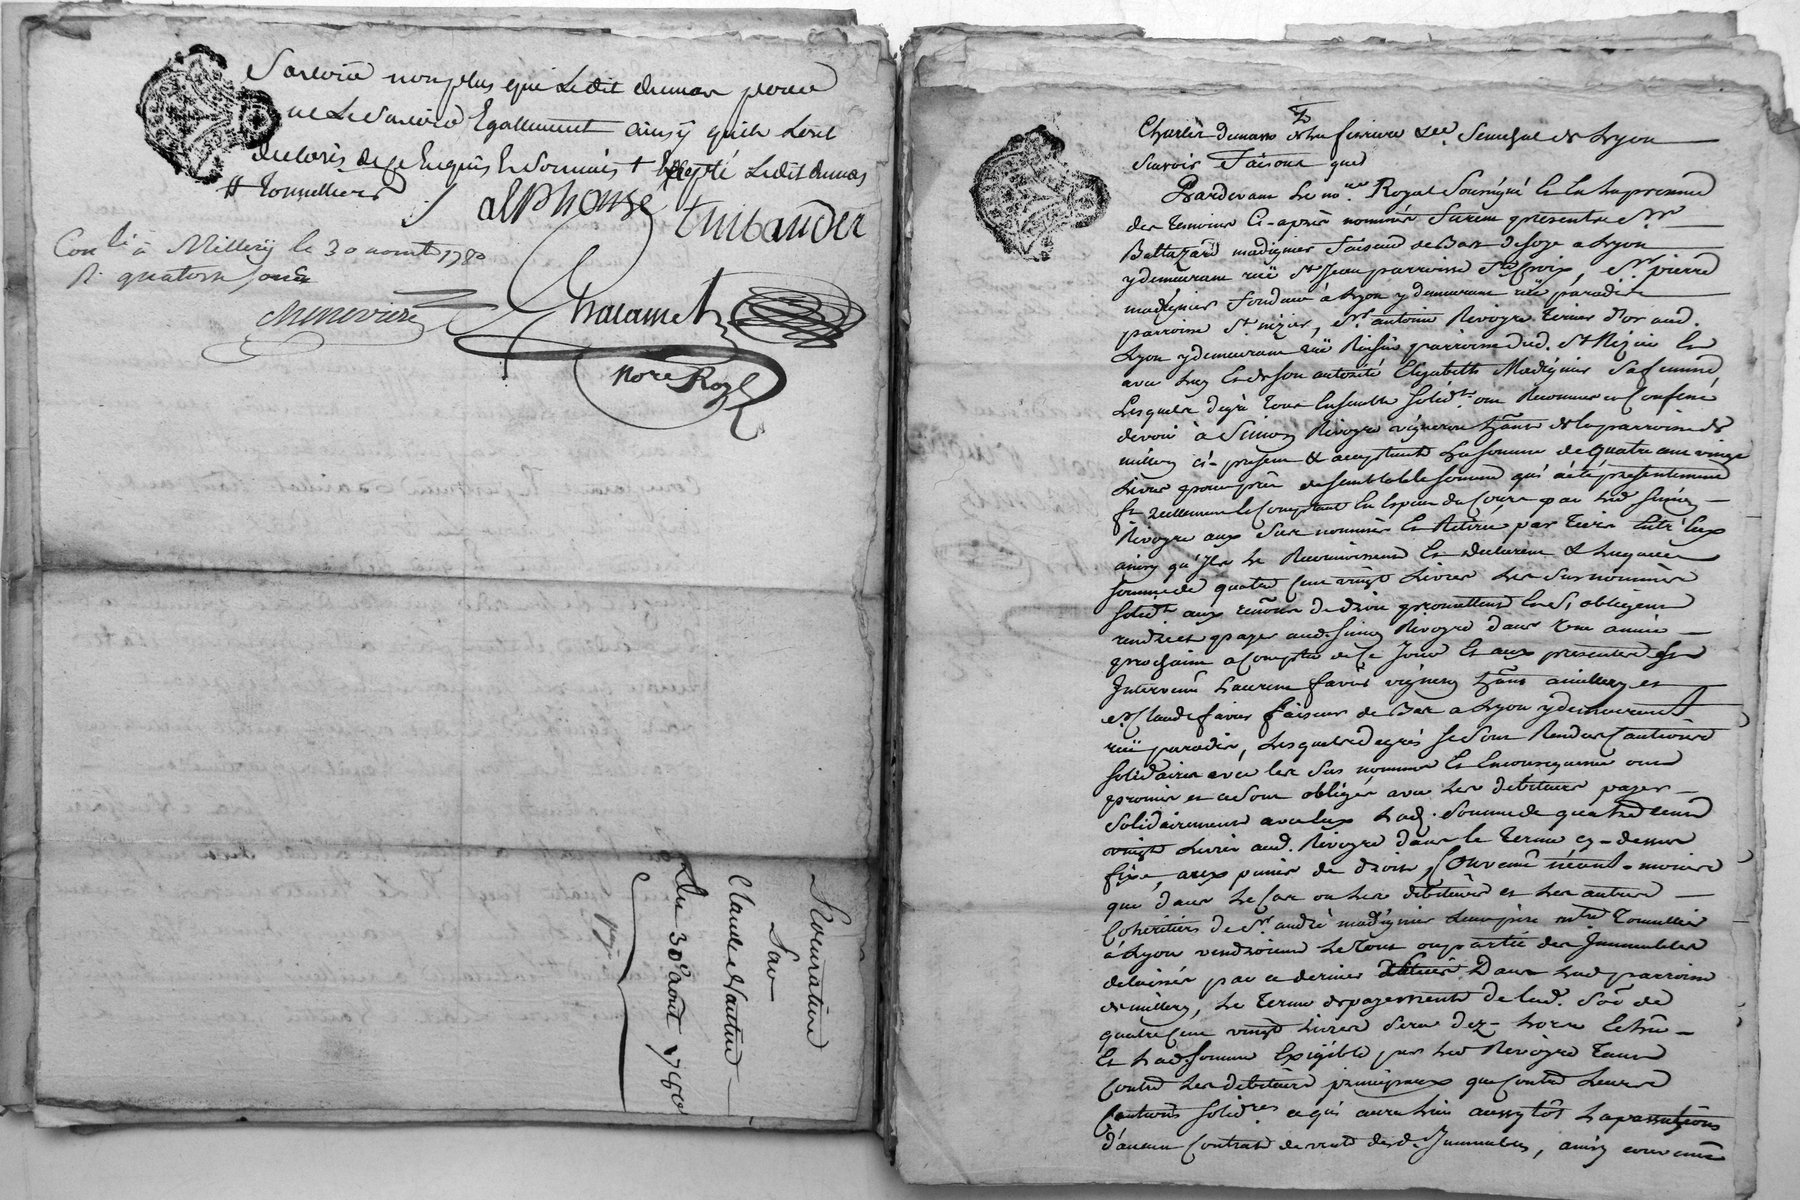 Scavoir non plus que Ledit dumas pour
ne Le Scavoir Egallement ainsy qu'ils L'ont
declarés de ce Enquis En Sommés + Excepté Ledit dumas
# tonnellier
alphonse thibaudier
Con.lé à Millery le 30 aoust 1780
R. quatorze sous
Cheneviere
Chalamet
No.re Royl
Procuration
Par
Claude
Du 30e aout 1780
Charles dumas de La Sen.al de Lyon
Scavoir faisons que
Pardevant Le no.re Royal Soussigné Et En La presence
des temoins Ci-après nommés furent presents Sr.
Baltazard madignier faiseur de Bas de soye a Lyon
y demeurant rue St Jean parroisse Ste Croix, Sr. pierre
madignier fondeur à Lyon y demeurant rüe paradis
parroisse St nizier, Sr. antoine Revoyre tireur d'or aud.
Lyon y demeurant rüe parroisse dud. St Nizier Et
avec Luy Et de Son autorité Elizabeth Madignier Sa femme
Lesquels de gré tous Ensemble Solid.t ont Reconnus et Confessé
devoir à Simon Revoyre vigneron h.ant de la parroisse de
millery ci-present & acceptant La Somme de quatre cent vingt
Livres pour prêt de semblable somme qui a été presentement
Et reellement Comptant En Especes de Cours par Led Simon
Revoyre aux Sus nommés Et Retiré par Eux
ainsy qu'ils Le Reconnoissent Et declarent & Laquelle
Somme de quatre Cent vingt Livres Les Sus nommés
Solid.t aux de droit promettent Et S'obligent
rendre et payer aud. Simon Revoyre dans une année
prochaine a Compter de Ce Jour Et aux presentes Est
Intervenu Laurent favre vigneron h.ant a millery et
Sr. Claude favre faiseur de Bas a Lyon y demeurant
rüe paradis, Lesquels de gré se Sont Rendus Cautions
Solidaires avec les Sus nommés Et En Consequence ont
promis et ce Sont obligés avec Les debiteurs payer
Solidairement avec Eux Lad. Somme de quatre Cent
vingt Livres aud. Revoyre dans le terme cy-dessus
fixé, aux peines de droit, Convenu néant-moins
que dans Le Cas ou Les debiteurs et Les autres
Cohéritiers de Sr. andré madignier Leur père m.tre tonnellier
à Lyon vendroient Le tout ou partie des Immeubles
delaissés par ce dernier dans Lad parroisse
de millery, Le terme de payement de Lad. So.e de
quatre Cent vingt Livres Sera dez-Lors Echu
Et Lad. Somme Exigible par Led Revoyre tant
Contre Les debiteurs principaux que Contre Leurs
Cautions Solid.res ce qui aura Lieu aussytôt La passation
d'aucun Contrat de vente desd. Immeubles, ainsy convenu